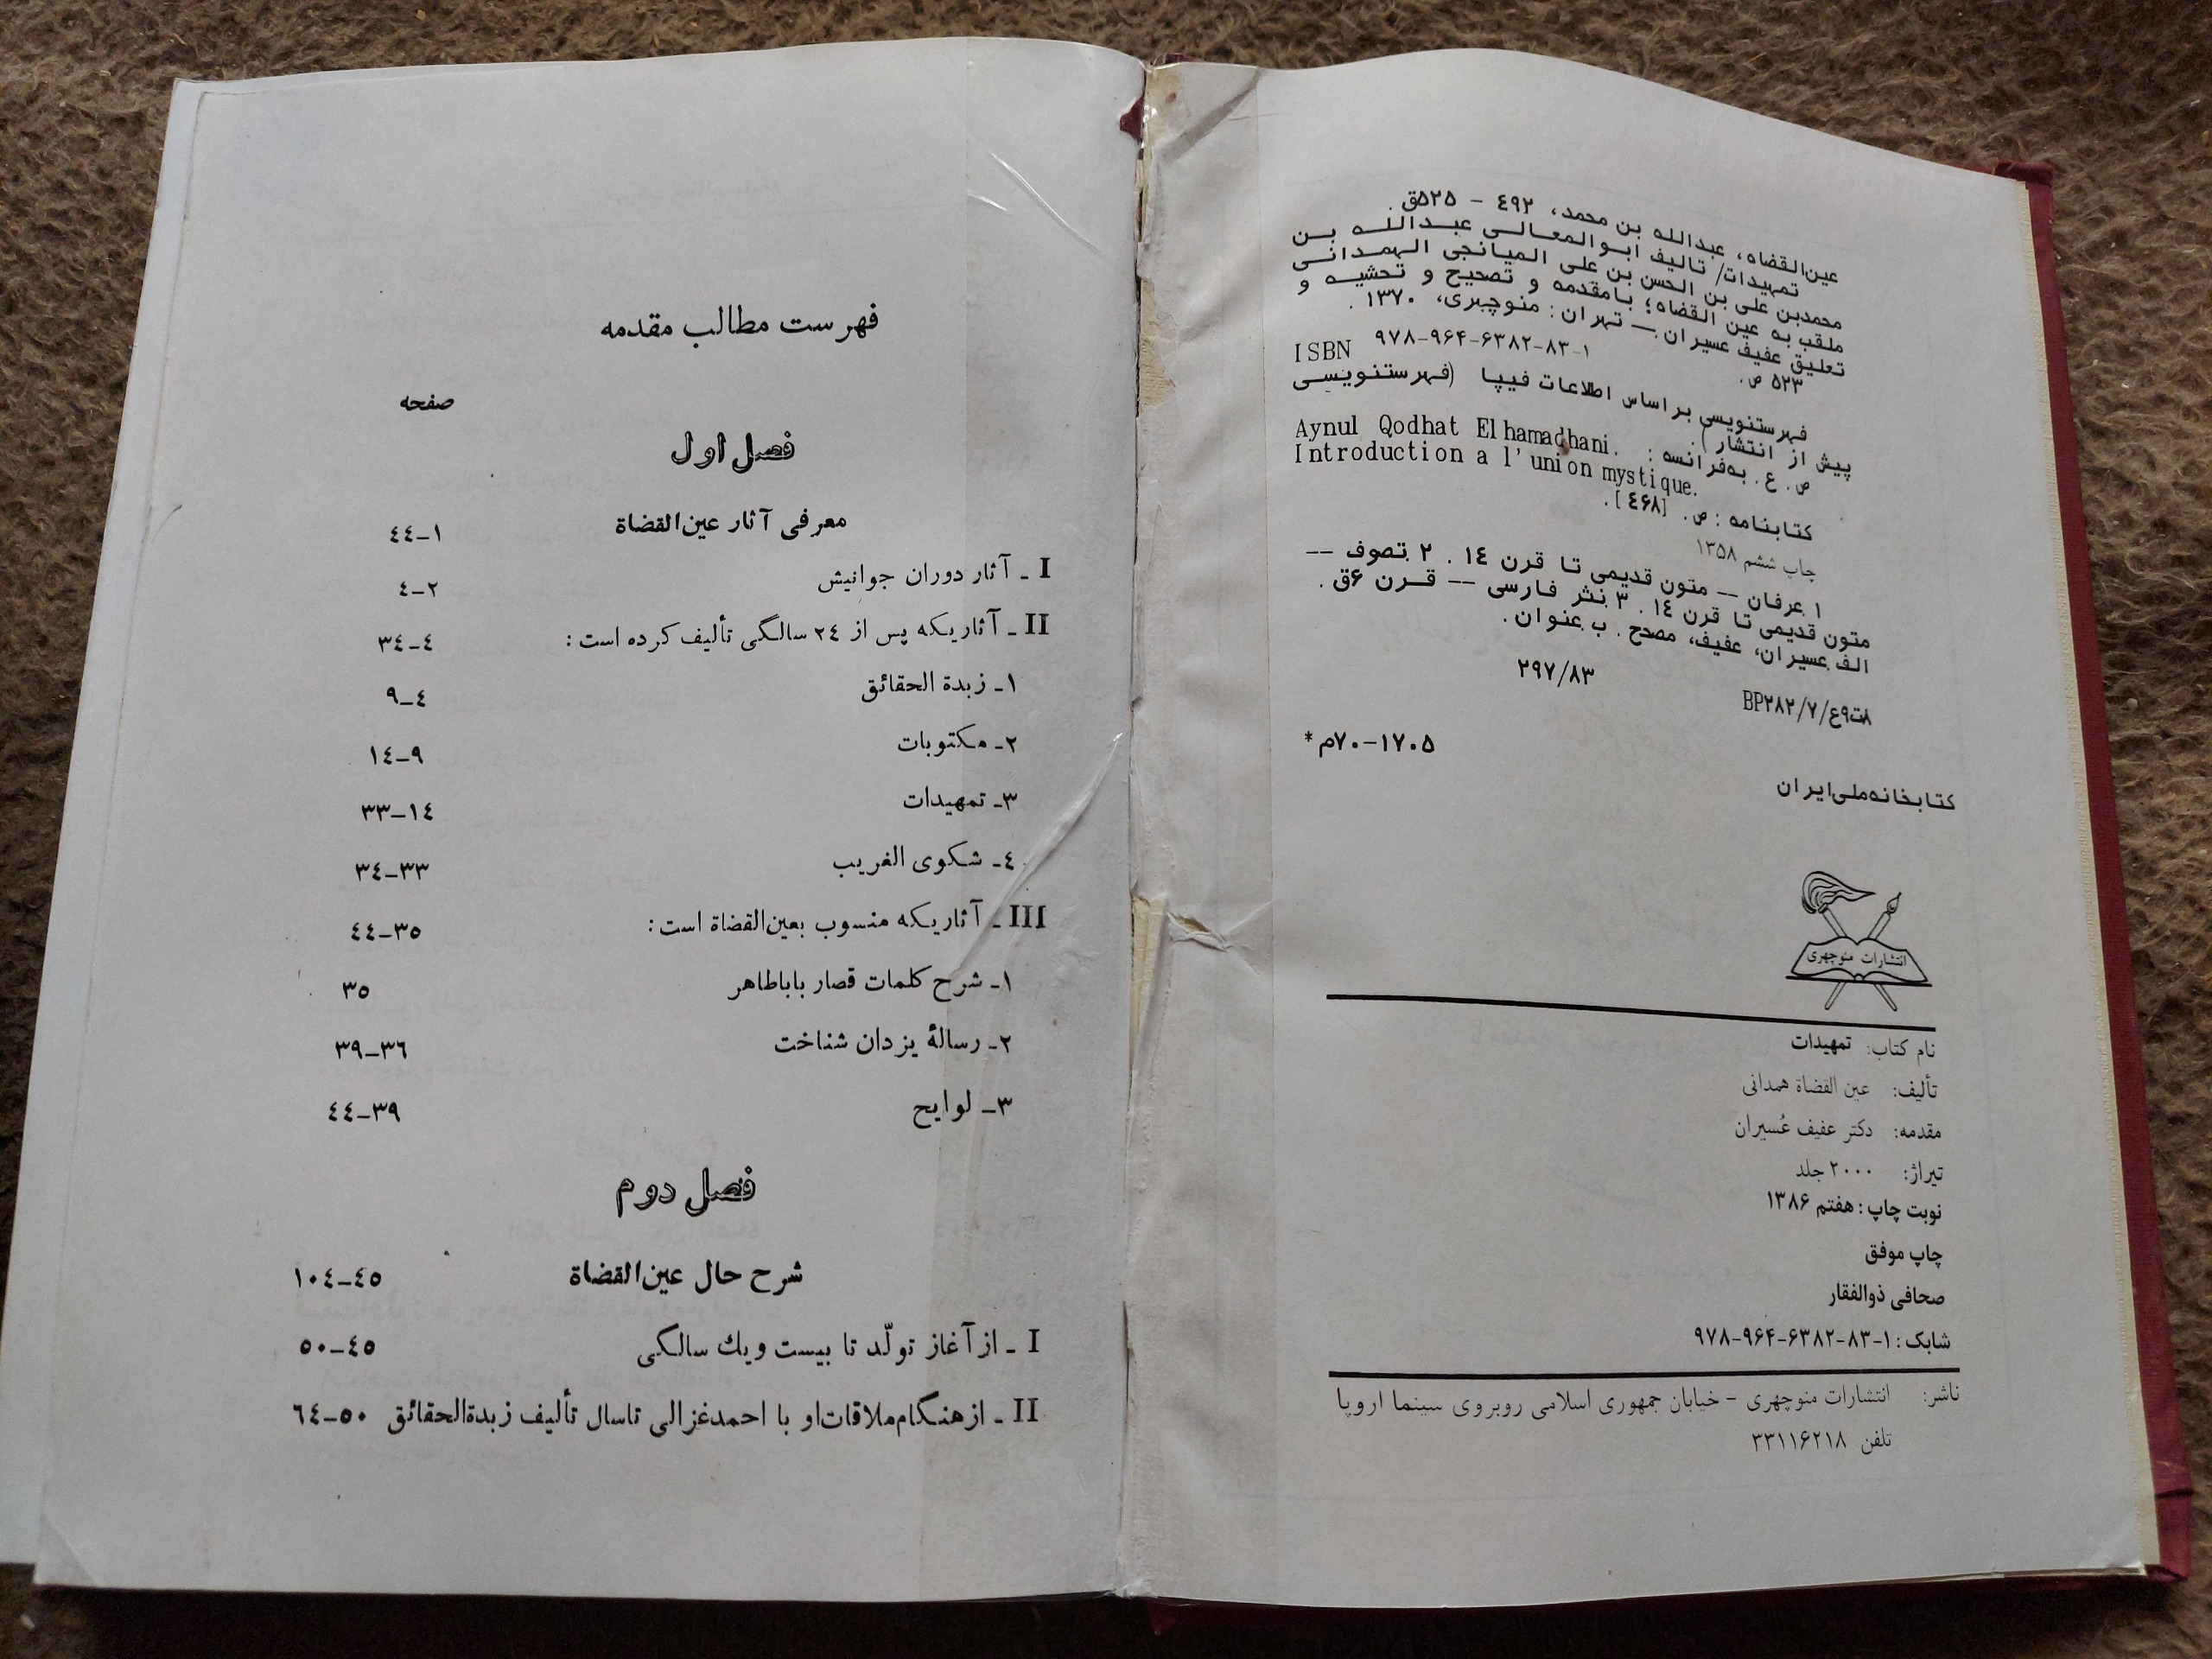 عین‌القضاه، عبدالله بن محمد، ٤٩٢ - ۵۲۵ق.
تمهیدات/ تالیف ابوالمعالی عبدالله بن
محمدبن علی بن الحسن بن علی المیانجی الهمدانی
ملقب به عین القضاه؛ بامقدمه و تصحیح و تحشیه و
تعلیق عفیف عسیران.— تهران: منوچهری، ۱۳۷۰.
۵۲۳ ص.
ISBN ۹۷۸-۹۶۴-۶۳۸۲-۸۳-۱
فهرستنویسی براساس اطلاعات فیپا (فهرستنویسی
پیش از انتشار).
ص. ع. به‌فرانسه: Aynul Qodhat Elhamadhani.
Introduction a l'union mystique.
کتابنامه: ص. [٤۶۸].
چاپ ششم ۱۳۵۸
۱. عرفان -- متون قدیمی تا قرن ۱٤. ۲. تصوف --
متون قدیمی تا قرن ۱٤. ۳. نثر فارسی -- قرن ۶ق.
الف. عسیران، عفیف، مصحح. ب. عنوان.
۲۹۷/۸۳
BP۲۸۲/۷/ع۹ت۸
*م۷۰-۱۷۰۵
کتابخانه‌ملی‌ایران
انتشارات منوچهری
نام کتاب: تمهیدات
تألیف: عین القضاة همدانی
مقدمه: دکتر عفیف عُسیران
تیراژ: ۲۰۰۰ جلد
نوبت چاپ: هفتم ۱۳۸۶
چاپ موفق
صحافی ذوالفقار
شابک: ۱-۸۳-۶۳۸۲-۹۶۴-۹۷۸
ناشر: انتشارات منوچهری - خیابان جمهوری اسلامی روبروی سینما اروپا
تلفن ۳۳۱۱۶۲۱۸
فهرست مطالب مقدمه
صفحه
فصل اول
معرفی آثار عین‌القضاة ۱–٤٤
I ـ آثار دوران جوانیش ۲–٤
II ـ آثاریکه پس از ۲٤ سالگی تألیف کرده است: ٤–۳٤
۱ـ زبدة الحقائق ٤–۹
۲ـ مکتوبات ۹–۱٤
۳ـ تمهیدات ۱٤–۳۳
٤ـ شکوی الغریب ۳۳–۳٤
III ـ آثاریکه منسوب بعین‌القضاة است: ۳٥–٤٤
۱ـ شرح کلمات قصار باباطاهر ۳٥
۲ـ رسالهٔ یزدان شناخت ۳٦–۳۹
۳ـ لوایح ۳۹–٤٤
فصل دوم
شرح حال عین‌القضاة ٤٥–۱۰٤
I ـ از آغاز تولّد تا بیست ویك سالگی ٤٥–٥۰
II ـ ازهنگام‌ملاقات‌او با احمدغزالی تاسال تألیف زبدةالحقائق ٥۰–٦٤